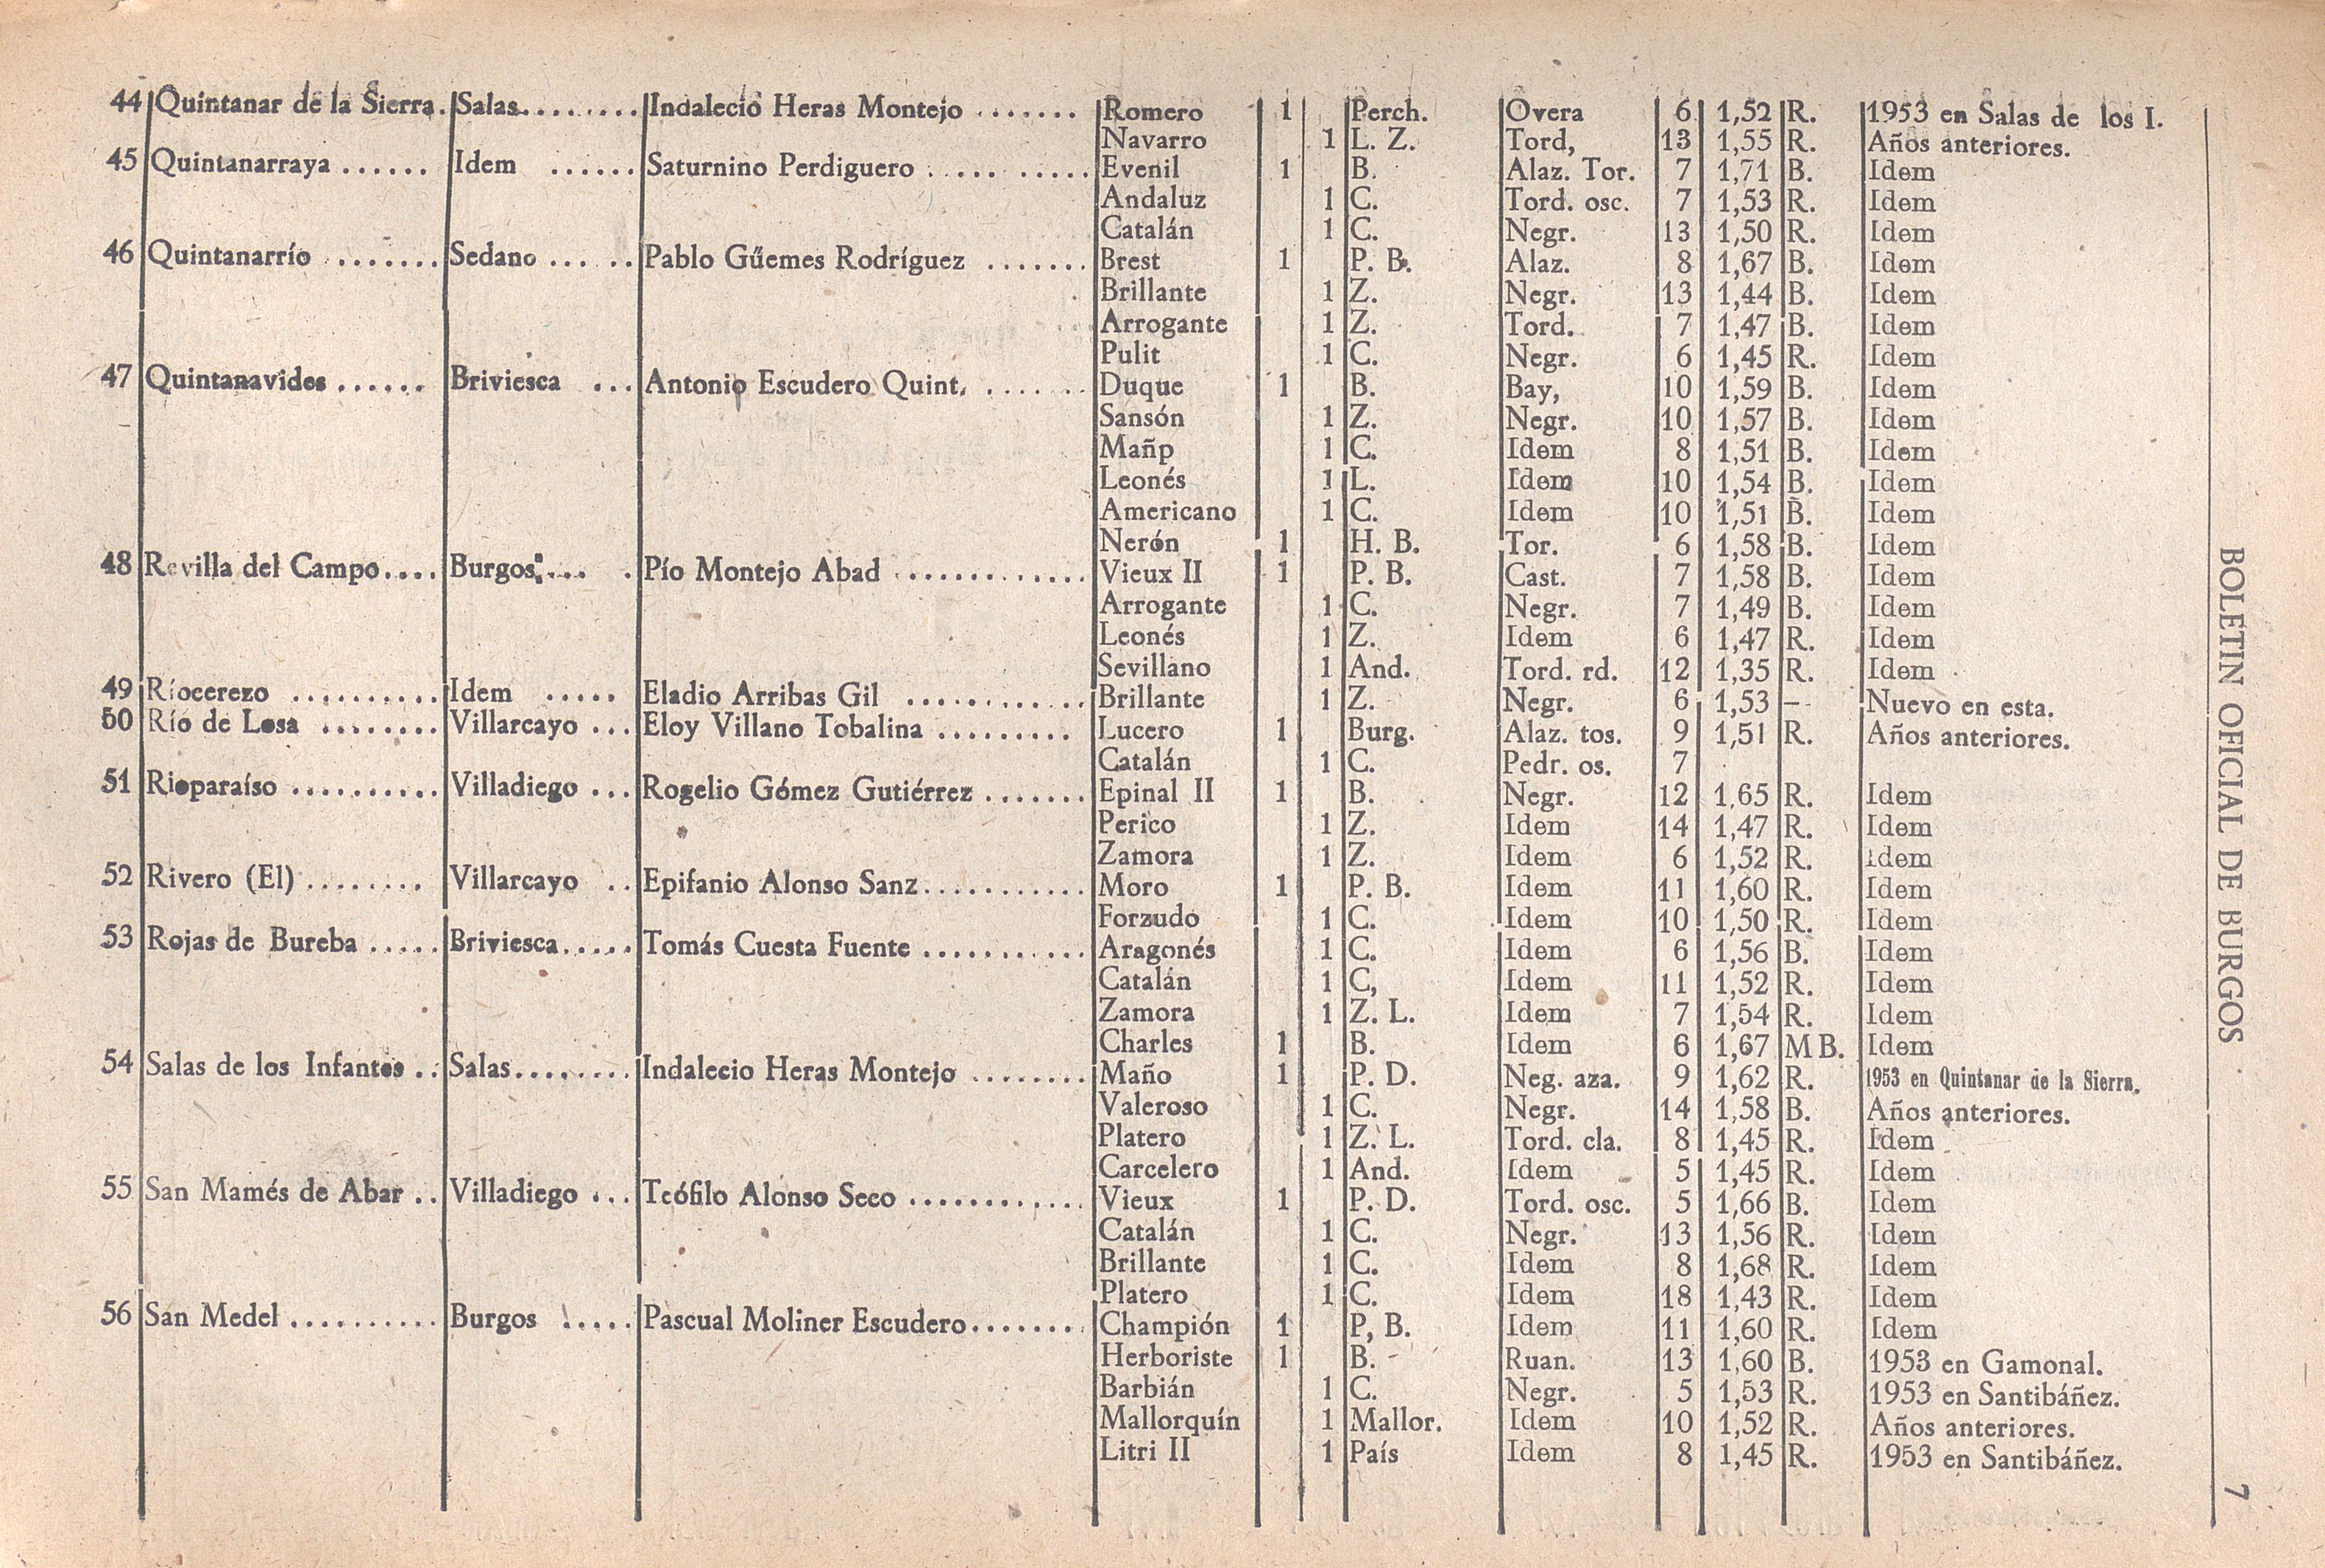 44 Quintanar de la Sierra. Salas......... Indalecio Heras Montejo ....... Romero 1 Perch. Overa 6 1,52 R. 1953 en Salas de los I.
Navarro 1 L. Z. Tord, 13 1,55 R. Años anteriores.
45 Quintanarraya ...... Idem ...... Saturnino Perdiguero ......... Evenil 1 B. Alaz. Tor. 7 1,71 B. Idem
Andaluz 1 C. Tord. osc. 7 1,53 R. Idem
Catalán 1 C. Negr. 13 1,50 R. Idem
46 Quintanarrío ....... Sedano ... .. Pablo Gűemes Rodríguez ....... Brest 1 P. B. Alaz. 8 1,67 B. Idem
Brillante 1 Z. Negr. 13 1,44 B. Idem
Arrogante 1 Z. Tord. 7 1,47 B. Idem
Pulit 1 C. Negr. 6 1,45 R. Idem
47 Quintanavides ...... Briviesca ... Antonio Escudero Quint. ...... Duque 1 B. Bay, 10 1,59 B. Idem
Sansón 1 Z. Negr. 10 1,57 B. Idem
Mañp 1 C. Idem 8 1,51 B. Idem
Leonés 1 L. Idem 10 1,54 B. Idem
Americano 1 C. Idem 10 1,51 B. Idem
Nerón 1 H. B. Tor. 6 1,58 B. Idem
48 Revilla del Campo.... Burgos.... . Pío Montejo Abad ............. Vieux II 1 P. B. Cast. 7 1,58 B. Idem
Arrogante 1 C. Negr. 7 1,49 B. Idem
Leonés 1 Z. Idem 6 1,47 R. Idem
Sevillano 1 And. Tord. rd. 12 1,35 R. Idem
49 Ríocerezo .......... Idem ..... Eladio Arribas Gil ............ Brillante 1 Z. Negr. 6 1,53 — Nuevo en esta.
50 Río de Losa ........ Villarcayo ... Eloy Villano Tobalina ......... Lucero 1 Burg. Alaz. tos. 9 1,51 R. Años anteriores.
Catalán 1 C. Pedr. os. 7
51 Rioparaíso .......... Villadiego ... Rogelio Gómez Gutiérrez ....... Epinal II 1 B. Negr. 12 1,65 R. Idem
Perico 1 Z. Idem 14 1,47 R. Idem
Zamora 1 Z. Idem 6 1,52 R. Idem
52 Rivero (El) ........ Villarcayo .. Epifanio Alonso Sanz........... Moro 1 P. B. Idem 11 1,60 R. Idem
Forzudo 1 C. Idem 10 1,50 R. Idem
53 Rojas de Bureba ..... Briviesca..... Tomás Cuesta Fuente ........... Aragonés 1 C. Idem 6 1,56 B. Idem
Catalán 1 C, Idem 11 1,52 R. Idem
Zamora 1 Z. L. Idem 7 1,54 R. Idem
Charles 1 B. Idem 6 1,67 M B. Idem
54 Salas de los Infantes .. Salas........ Indalecio Heras Montejo ........ Maño 1 P. D. Neg. aza. 9 1,62 R. 1953 en Quintanar de la Sierra.
Valeroso 1 C. Negr. 14 1,58 B. Años anteriores.
Platero 1 Z. L. Tord. cla. 8 1,45 R. Idem
Carcelero 1 And. Idem 5 1,45 R. Idem
55 San Mamés de Abar .. Villadiego ... Teófilo Alonso Seco ............ Vieux 1 P. D. Tord. osc. 5 1,66 B. Idem
Catalán 1 C. Negr. 13 1,56 R. Idem
Brillante 1 C. Idem 8 1,68 R. Idem
Platero 1 C. Idem 18 1,43 R. Idem
56 San Medel .......... Burgos ..... Pascual Moliner Escudero....... Champión 1 P, B. Idem 11 1,60 R. Idem
Herboriste 1 B. Ruan. 13 1,60 B. 1953 en Gamonal.
Barbián 1 C. Negr. 5 1,53 R. 1953 en Santibáñez.
Mallorquín 1 Mallor. Idem 10 1,52 R. Años anteriores.
Litri II 1 País Idem 8 1,45 R. 1953 en Santibáñez.
BOLETIN OFICIAL DE BURGOS 7